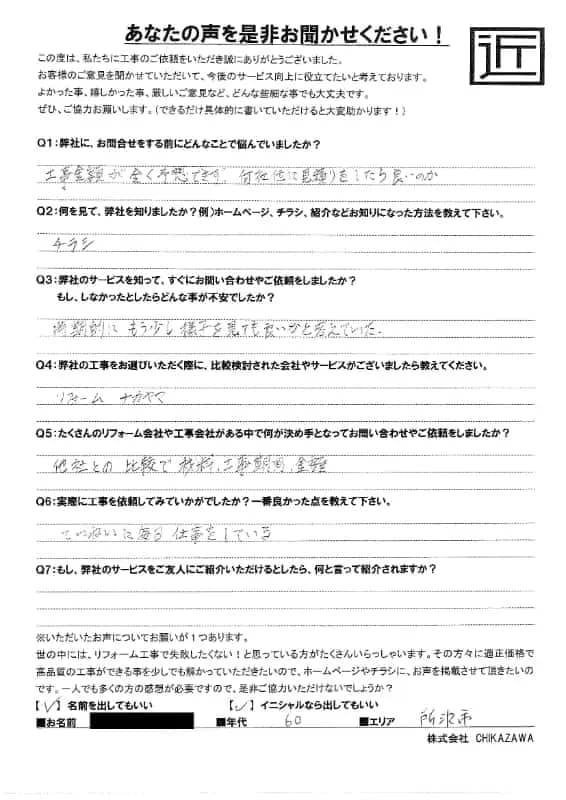 あなたの声を是非お聞かせください！
近
この度は、私たちに工事のご依頼をいただき誠にありがとうございました。
お客様のご意見を聞かせていただいて、今後のサービス向上に役立てたいと考えております。
よかった事、嬉しかった事、厳しいご意見など、どんな些細な事でも大丈夫です。
ぜひ、ご協力お願いします。（できるだけ具体的に書いていただけると大変助かります！）
Q1：弊社に、お問合せをする前にどんなことで悩んでいましたか？
工事金額が全く予想できず、何社位に見積りをしたら良いのか
Q2：何を見て、弊社を知りましたか？例）ホームページ、チラシ、紹介などお知りになった方法を教えて下さい。
チラシ
Q3：弊社のサービスを知って、すぐにお問い合わせやご依頼をしましたか？
もし、しなかったとしたらどんな事が不安でしたか？
時期的に もう少し様子を見ても良いかと考えていた。
Q4：弊社の工事をお選びいただく際に、比較検討された会社やサービスがございましたら教えてください。
リフォーム ナカヤマ
Q5：たくさんのリフォーム会社や工事会社がある中で何が決め手となってお問い合わせやご依頼をしましたか？
他社との比較で材料、工事期間、金額
Q6：実際に工事を依頼してみていかがでしたか？一番良かった点を教えて下さい。
ていねいな 仕事をしている
Q7：もし、弊社のサービスをご友人にご紹介いただけるとしたら、何と言って紹介されますか？
※いただいたお声についてお願いが１つあります。
世の中には、リフォーム工事で失敗したくない！と思っている方がたくさんいらっしゃいます。その方々に適正価格で
高品質の工事ができる事を少しでも解かっていただきたいので、ホームページやチラシに、お声を掲載させて頂きたいの
です。一人でも多くの方の感想が必要ですので、是非ご協力いただけないでしょうか？
【✓】名前を出してもいい 【✓】イニシャルなら出してもいい
■お名前 ■年代 60 ■エリア 所沢市
株式会社 CHIKAZAWA